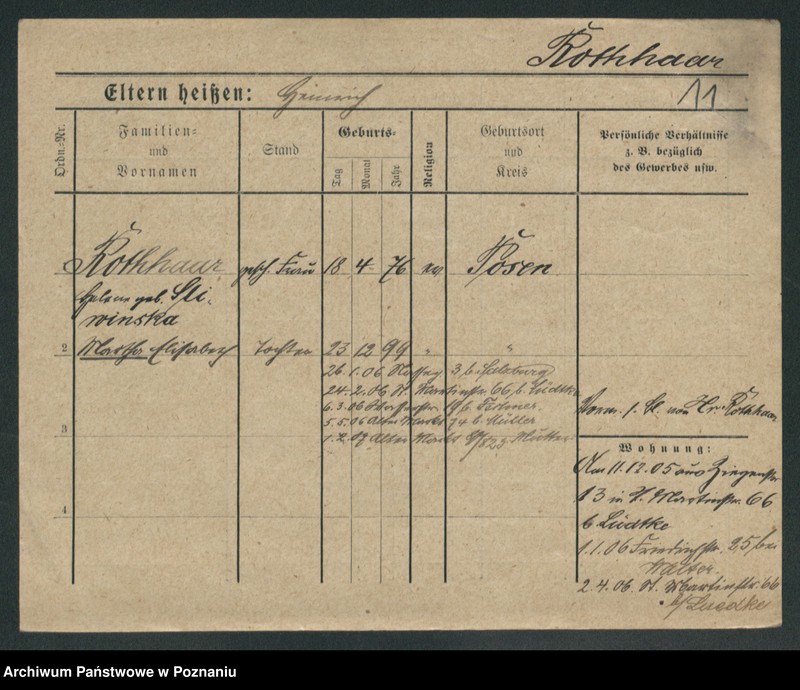 Rothhaar
Eltern heißen: Heinrich
11
Ordn.-Nr.
Familien-
und
Vornamen
Stand
Geburts-
Tag
Monat
Jahr
Religion
Geburtsort
und
Kreis
Persönliche Verhältnisse
z. B. bezüglich
des Gewerbes usw.
Rothhaar gesch. Frau 18 4 76 ev Posen
Helene geb. Sli-
winska
2 Martha Elisabeth Tochter 23 12 99 " "
26. 1. 06 3 b.
24. 2. 06 St. Martinstr. 66 b. Lüdtke
6. 3. 06 19 b.
5. 5. 06 Alter Markt 74 b. Müller
1. 2. 07 Alter Markt
Vorm. f. St. von Hr. Rothhaar
3
Wohnung:
Am 11. 12. 05 aus Ziegenstr.
13 in St. Martinstr. 66
b Lüdtke
4
1. 1. 06 Friedrichstr. 25 bei
2. 4. 06 St. Martinstr. 66
b/ Luedke
Archiwum Państwowe w Poznaniu